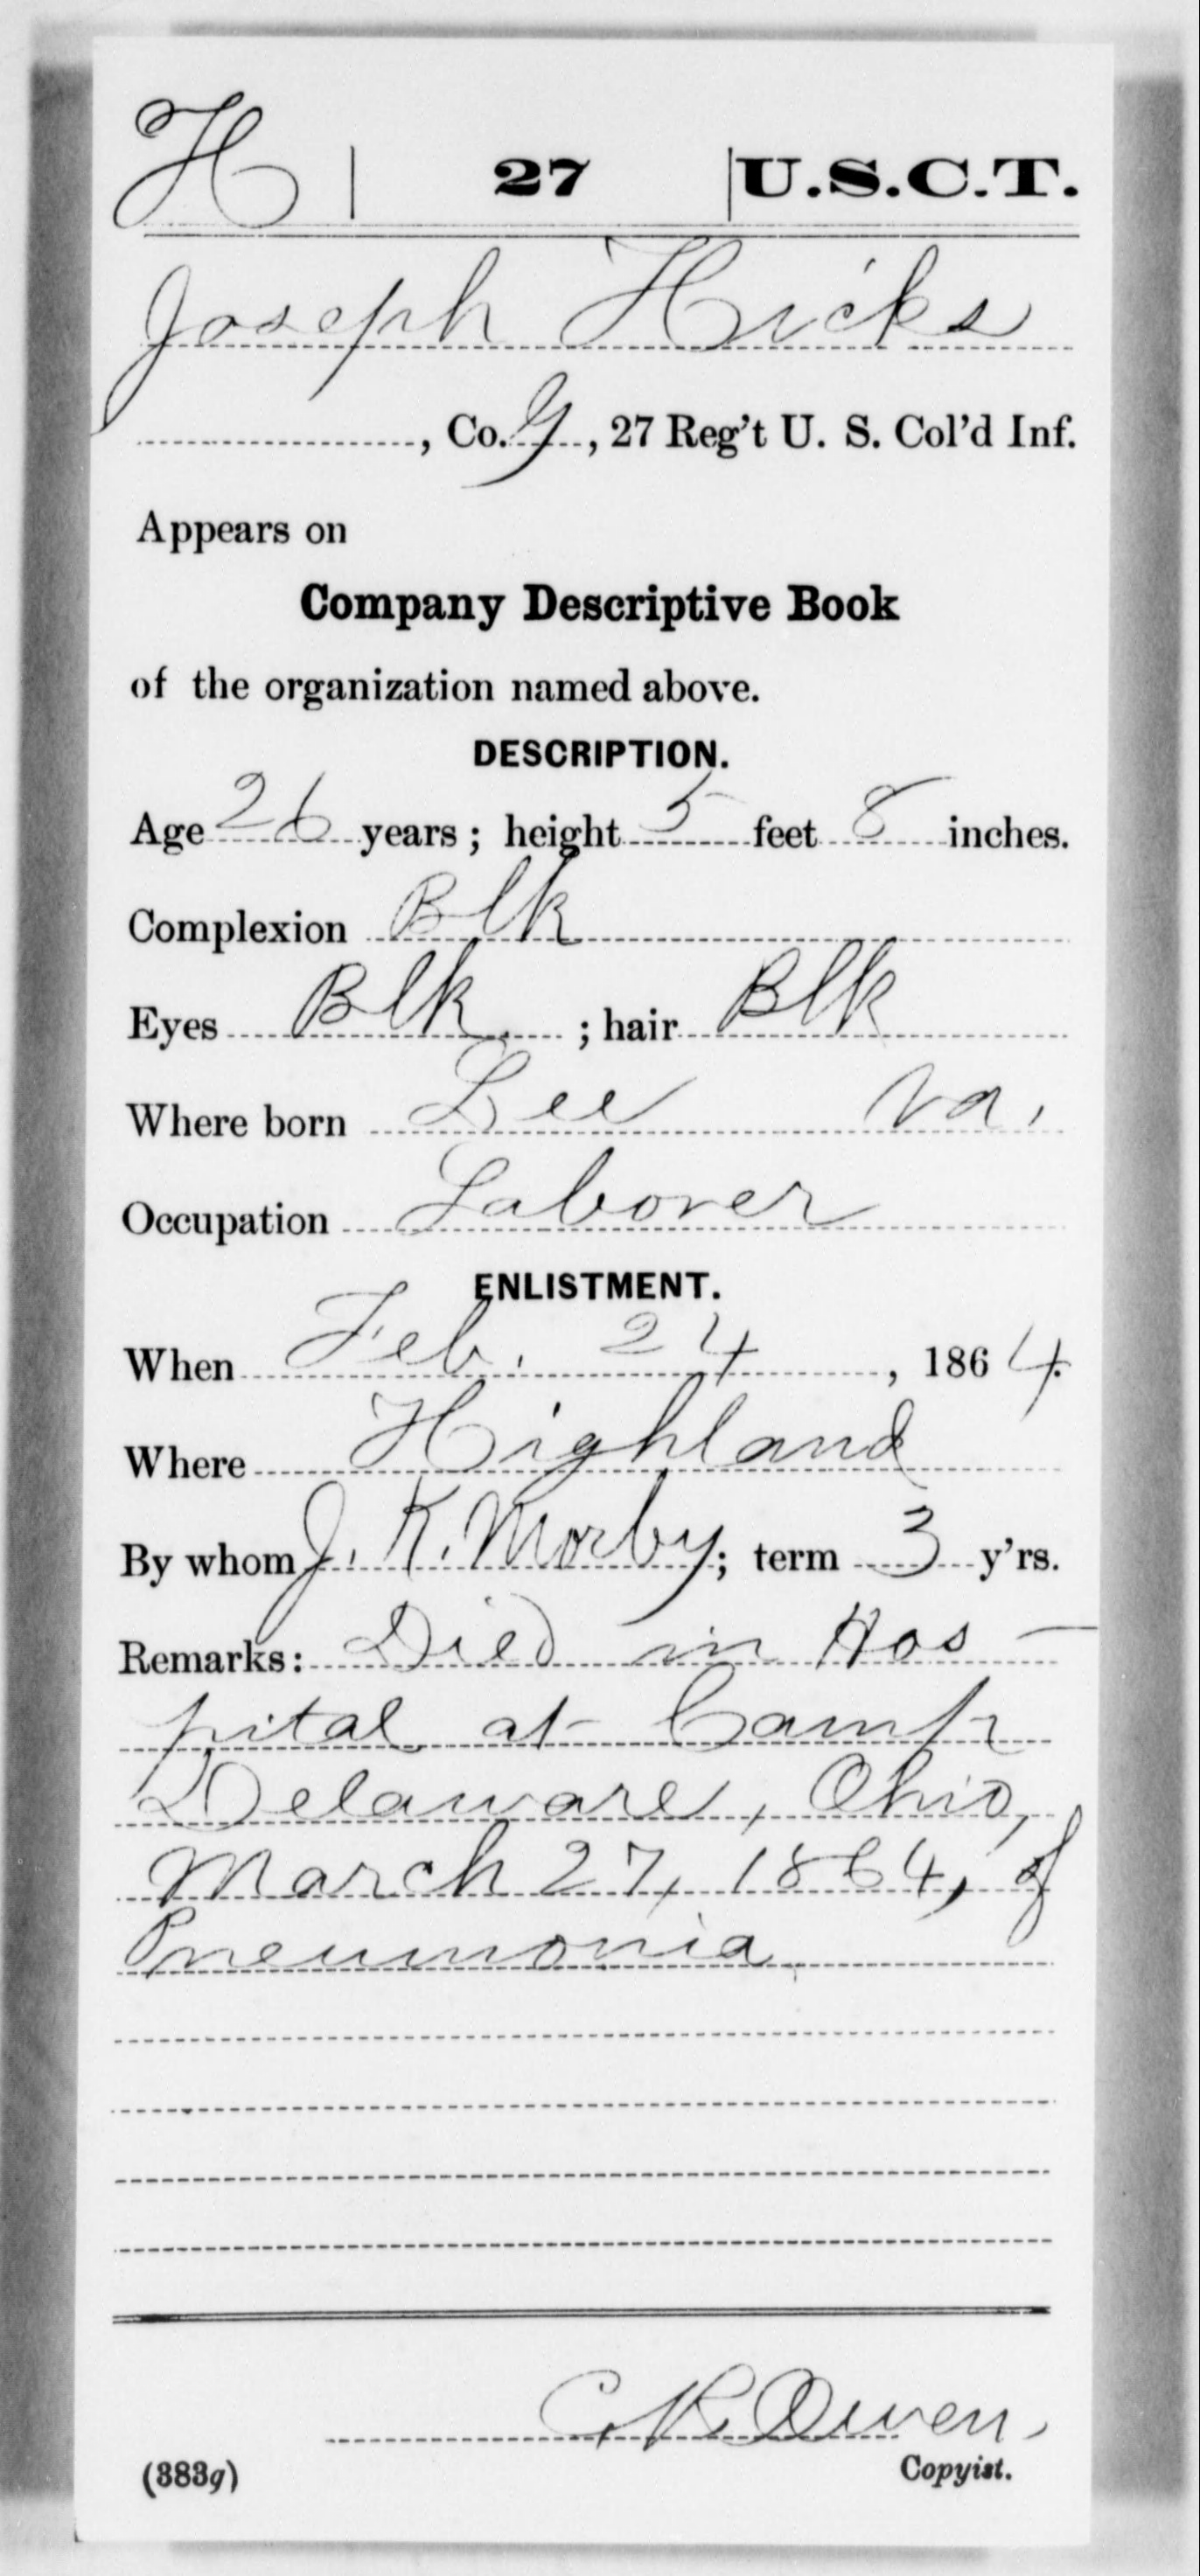 H | 27 | U.S.C.T.
Joseph Hicks
, Co. G, 27 Reg't U. S. Col'd Inf.
Appears on
Company Descriptive Book
of the organization named above.
DESCRIPTION.
Age 26 years; height 5 feet 8 inches.
Complexion Blk
Eyes Blk ; hair Blk
Where born Lee Va.
Occupation Laborer
ENLISTMENT.
When Feb. 24, 1864.
Where Highland
By whom J. K. Morby; term 3 y'rs.
Remarks: Died in Hos-
pital at Camp
Delaware, Ohio,
March 27, 1864, of
Pneumonia
C. R. Owen,
(383g) Copyist.